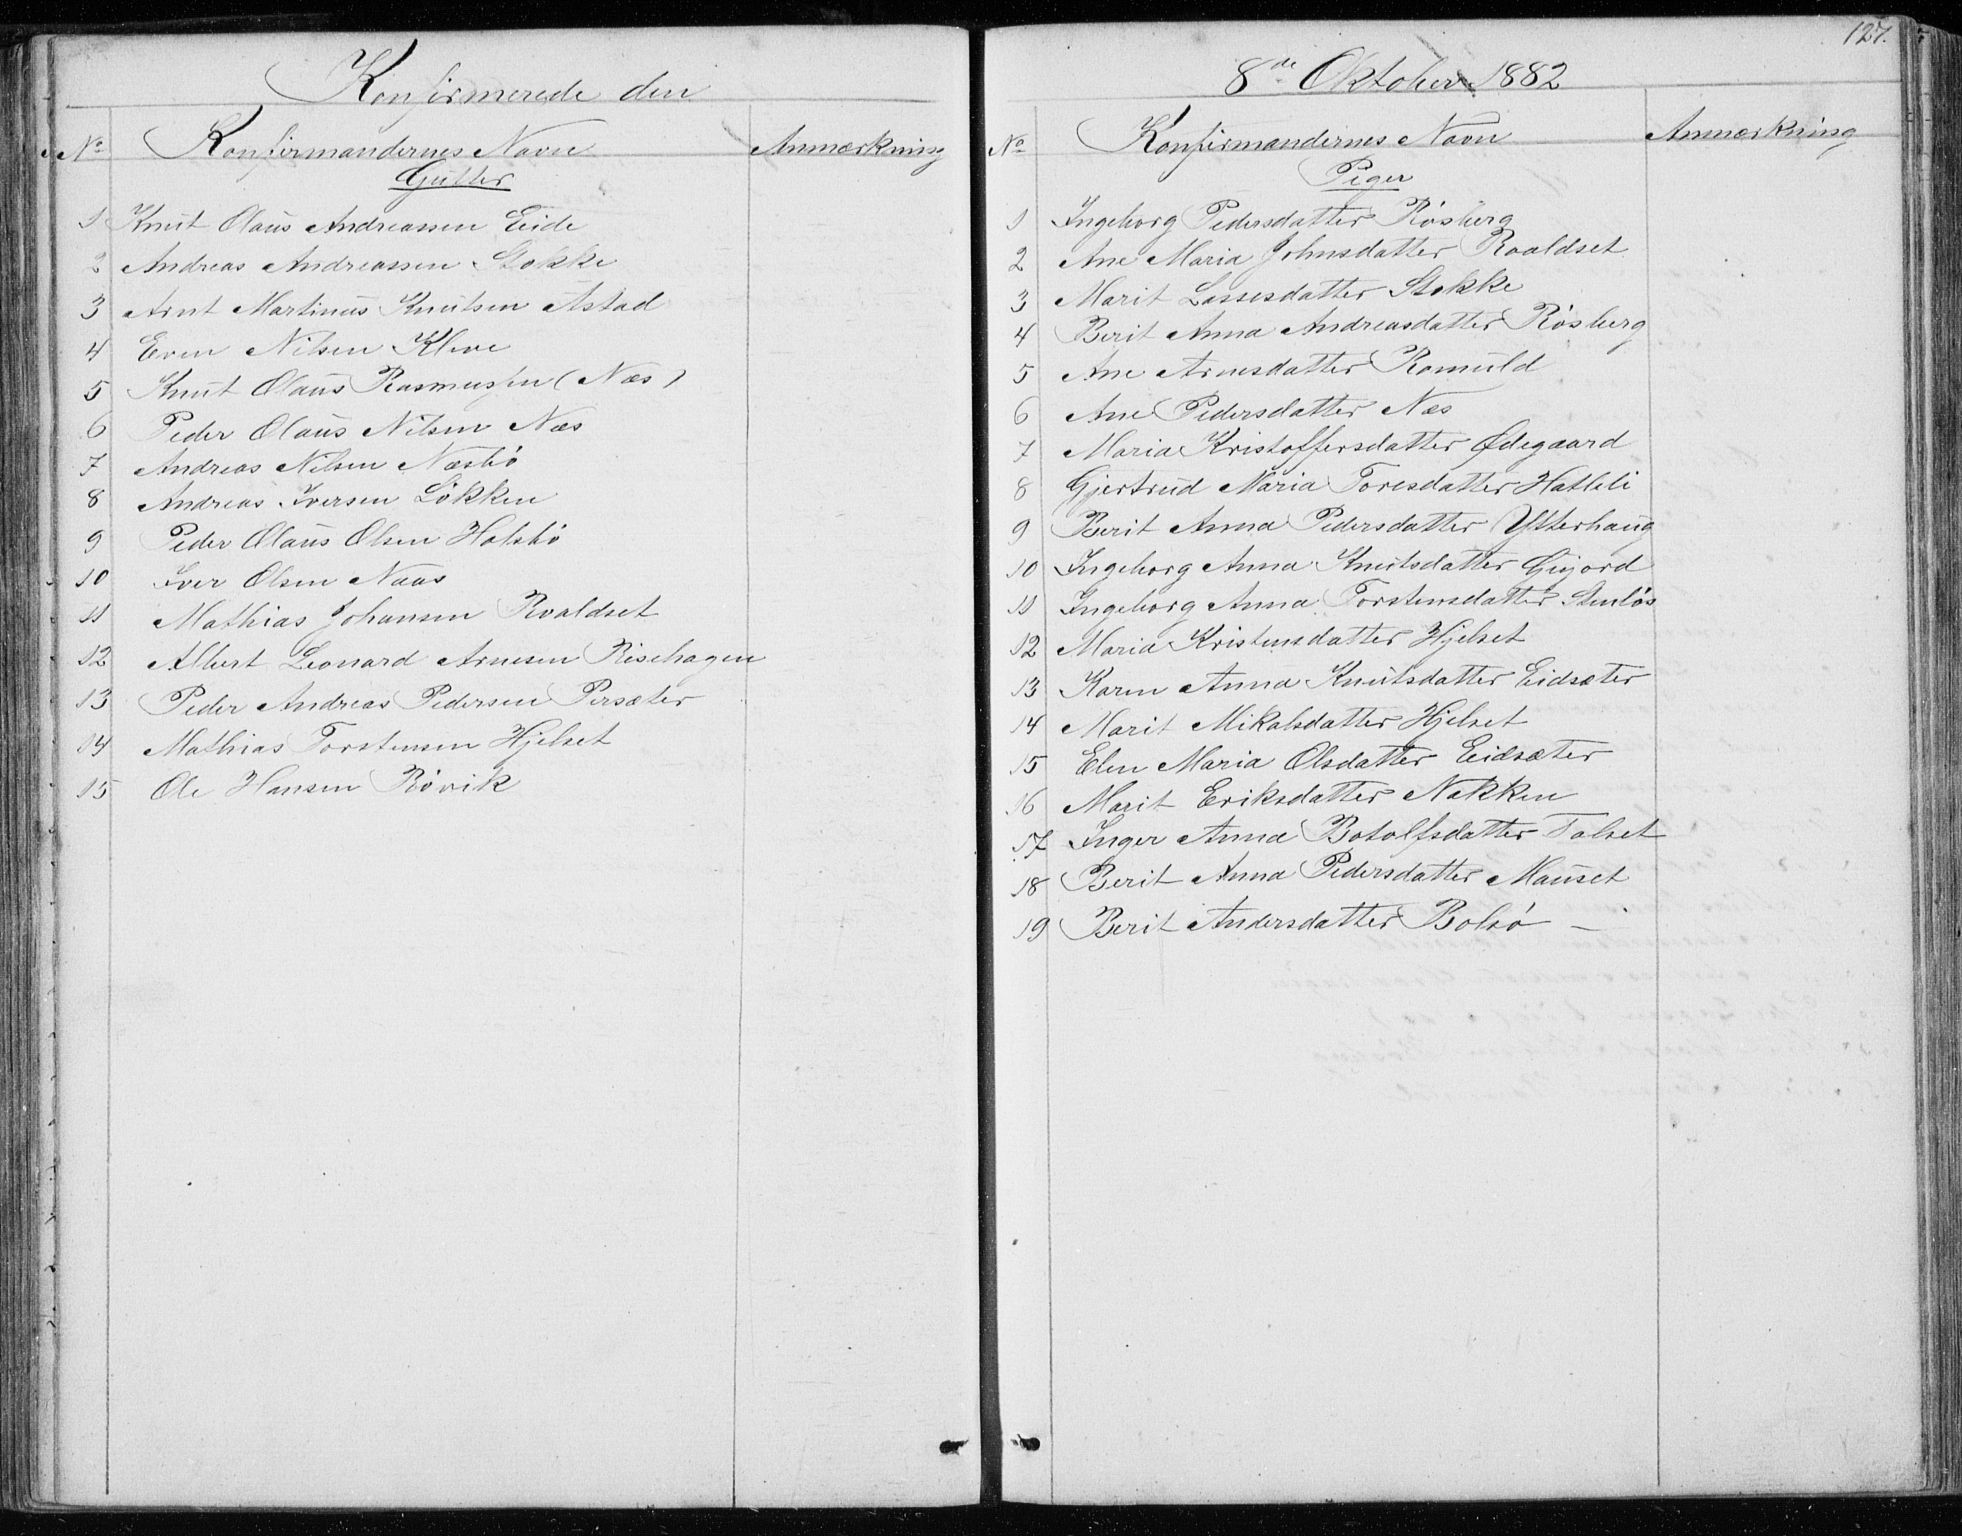 Konfirmerede den
No Konfirmandernes Navn Anmærkning
Gutter
1 Knut Olaus Andreassen Eide
2 Andreas Andreassen Stokke
3 Arnt Martinus Knutsen Åstad
4 Even Nilsen Kleve
5 Knut Olaus Rasmussen (Næs)
6 Peder Olaus Nilsen Næs
7 Andreas Nilsen Næsbø
8 Andreas Iversen Løkken
9 Peder Olaus Olsen Holsbø
10 Iver Olsen Naas
11 Mathias Johansen Roaldset
12 Albert Leonard Arnesen Risehagen
13 Peder Andreas Pedersen Persæter
14 Mathias Torstensen Hjelset
15 Ole Hansen Røvik
127.
8de Oktober 1882
No Konfirmandernes Navn Anmærkning
Piger
1 Ingeborg Pedersdatter Røsberg
2 Ane Maria Johnsdatter Roaldset
3 Marit Lassesdatter Stokke
4 Berit Anna Andreasdatter Røsberg
5 Ane Arnesdatter Romuld
6 Ane Pedersdatter Næs
7 Maria Kristoffersdatter Ødegaard
8 Gjertrud Maria Toresdatter Hatleli
9 Berit Anna Pedersdatter Ytterhaug
10 Ingeborg Anna Knutsdatter Gujord
11 Ingeborg Anna Torstensdatter Stenløs
12 Maria Kristensdatter Hjelset
13 Karen Anna Knutsdatter Eidsæter
14 Marit Mikalsdatter Hjelset
15 Elen Maria Olsdatter Eidsæter
16 Marit Eriksdatter Nakken
17 Inger Anna Botolfsdatter Talset
18 Berit Anna Pedersdatter Mauset
19 Berit Andersdatter Bolsø —